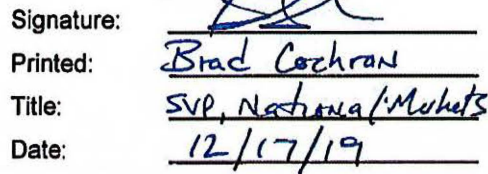 Signature:
Printed: Brad Cochran
Title: SVP, National Markets
Date: 12/17/19